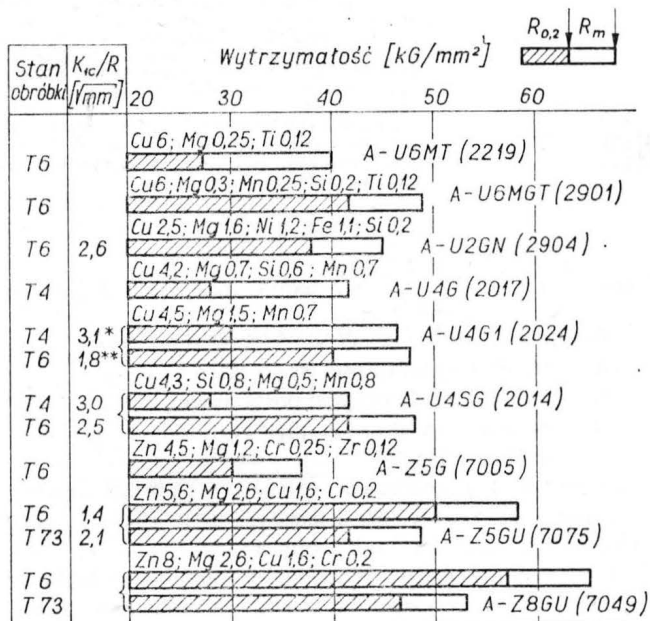 R₀,₂ Rₘ
Wytrzymałość [kG/mm²]
Stan obróbki K₁c/R [√mm] 20 30 40 50 60
Cu 6; Mg 0,25; Ti 0,12
T6 A-U6MT (2219)
Cu6; Mg 0,3; Mn 0,25; Si 0,2; Ti 0,12
T6 A-U6MGT (2901)
Cu 2,5; Mg 1,6; Ni 1,2; Fe 1,1; Si 0,2
T6 2,6 A-U2GN (2904)
Cu 4,2; Mg 0,7; Si 0,6; Mn 0,7
T4 A-U4G (2017)
Cu 4,5; Mg 1,5; Mn 0,7
T4 3,1* A-U4G1 (2024)
T6 1,8**
Cu 4,3; Si 0,8; Mg 0,5; Mn 0,8
T4 3,0 A-U4SG (2014)
T6 2,5
Zn 4,5; Mg 1,2; Cr 0,25; Zr 0,12
T6 A-Z5G (7005)
Zn 5,6; Mg 2,6; Cu 1,6; Cr 0,2
T6 1,4
T73 2,1 A-Z5GU (7075)
Zn 8; Mg 2,6; Cu 1,6; Cr 0,2
T6
T73 A-Z8GU (7049)